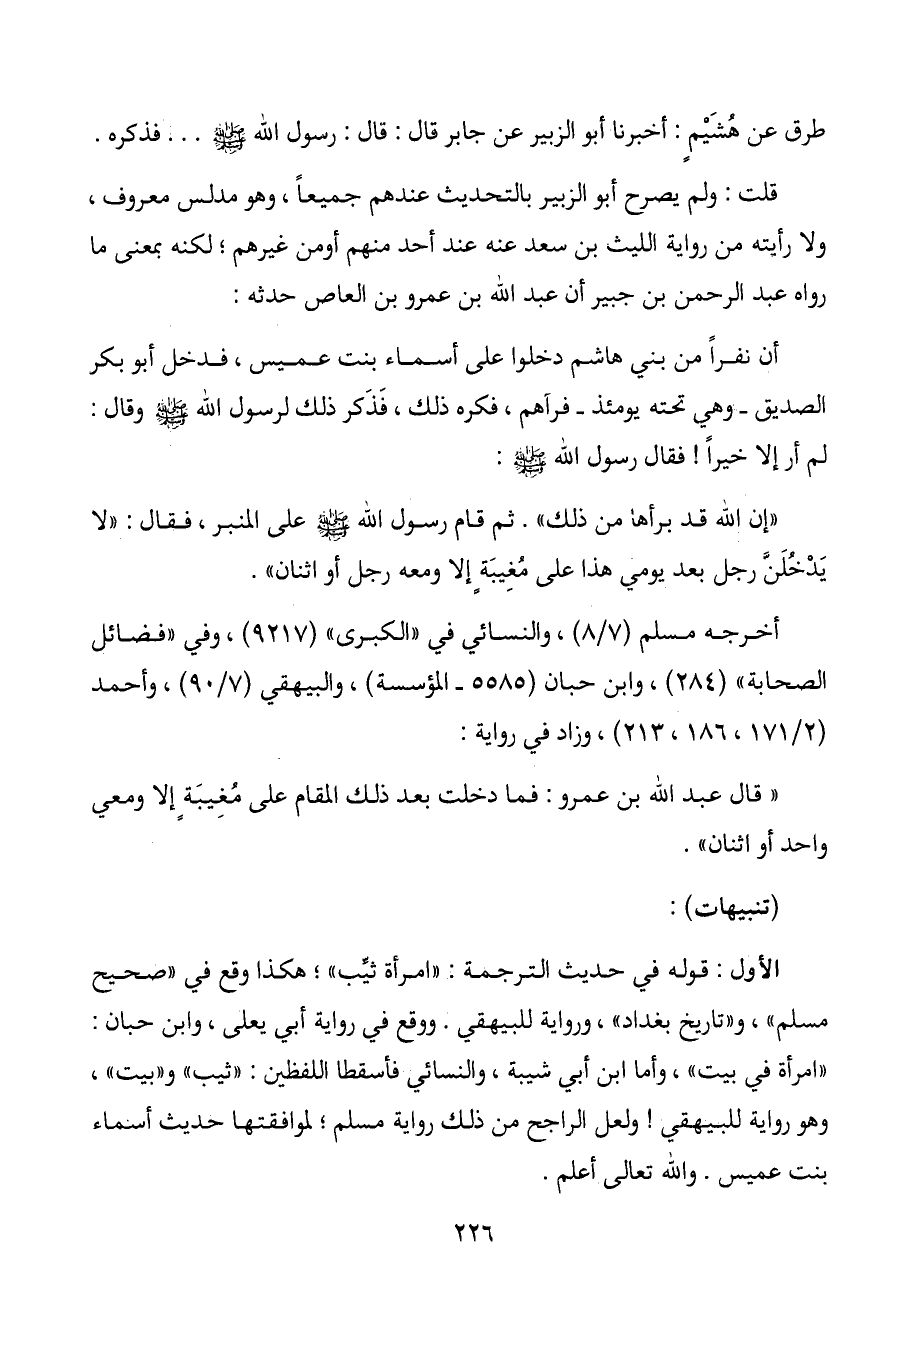 طرق عن هُشَيْمٍ : أخبرنا أبو الزبير عن جابر قال : قال : رسول الله ﷺ . . . فذكره .
قلت : ولم يصرح أبو الزبير بالتحديث عندهم جميعاً ، وهو مدلس معروف ،
ولا رأيته من رواية الليث بن سعد عنه عند أحد منهم أومن غيرهم ؛ لكنه بمعنى ما
رواه عبد الرحمن بن جبير أن عبد الله بن عمرو بن العاص حدثه :
أن نفراً من بني هاشم دخلوا على أسماء بنت عميس ، فدخل أبو بكر
الصديق ـ وهي تحته يومئذ ـ فرآهم ، فكره ذلك ، فَذَكر ذلك لرسول الله ﷺ وقال :
لم أر إلا خيراً ! فقال رسول الله ﷺ :
«إن الله قد برأها من ذلك» . ثم قام رسول الله ﷺ على المنبر ، فقال : «لا
يَدْخُلَنَّ رجل بعد يومي هذا على مُغِيبَةٍ إلا ومعه رجل أو اثنان» .
أخرجه مسلم (٨/٧) ، والنسائي في «الكبرى» (٩٢١٧) ، وفي «فضائل
الصحابة» (٢٨٤) ، وابن حبان (٥٥٨٥ ـ المؤسسة) ، والبيهقي (٩٠/٧) ، وأحمد
(١٧١/٢ ، ١٨٦ ، ٢١٣) ، وزاد في رواية :
« قال عبد الله بن عمرو : فما دخلت بعد ذلك المقام على مُغِيبَةٍ إلا ومعي
واحد أو اثنان» .
(تنبيهات) :
الأول : قوله في حديث الترجمة : «امرأة ثيِّب» ؛ هكذا وقع في «صحيح
مسلم» ، و«تاريخ بغداد» ، ورواية للبيهقي . ووقع في رواية أبي يعلى ، وابن حبان :
«امرأة في بيت» ، وأما ابن أبي شيبة ، والنسائي فأسقطا اللفظين : «ثيب» و«بيت» ،
وهو رواية للبيهقي ! ولعل الراجح من ذلك رواية مسلم ؛ لموافقتها حديث أسماء
بنت عميس . والله تعالى أعلم .
٢٢٦